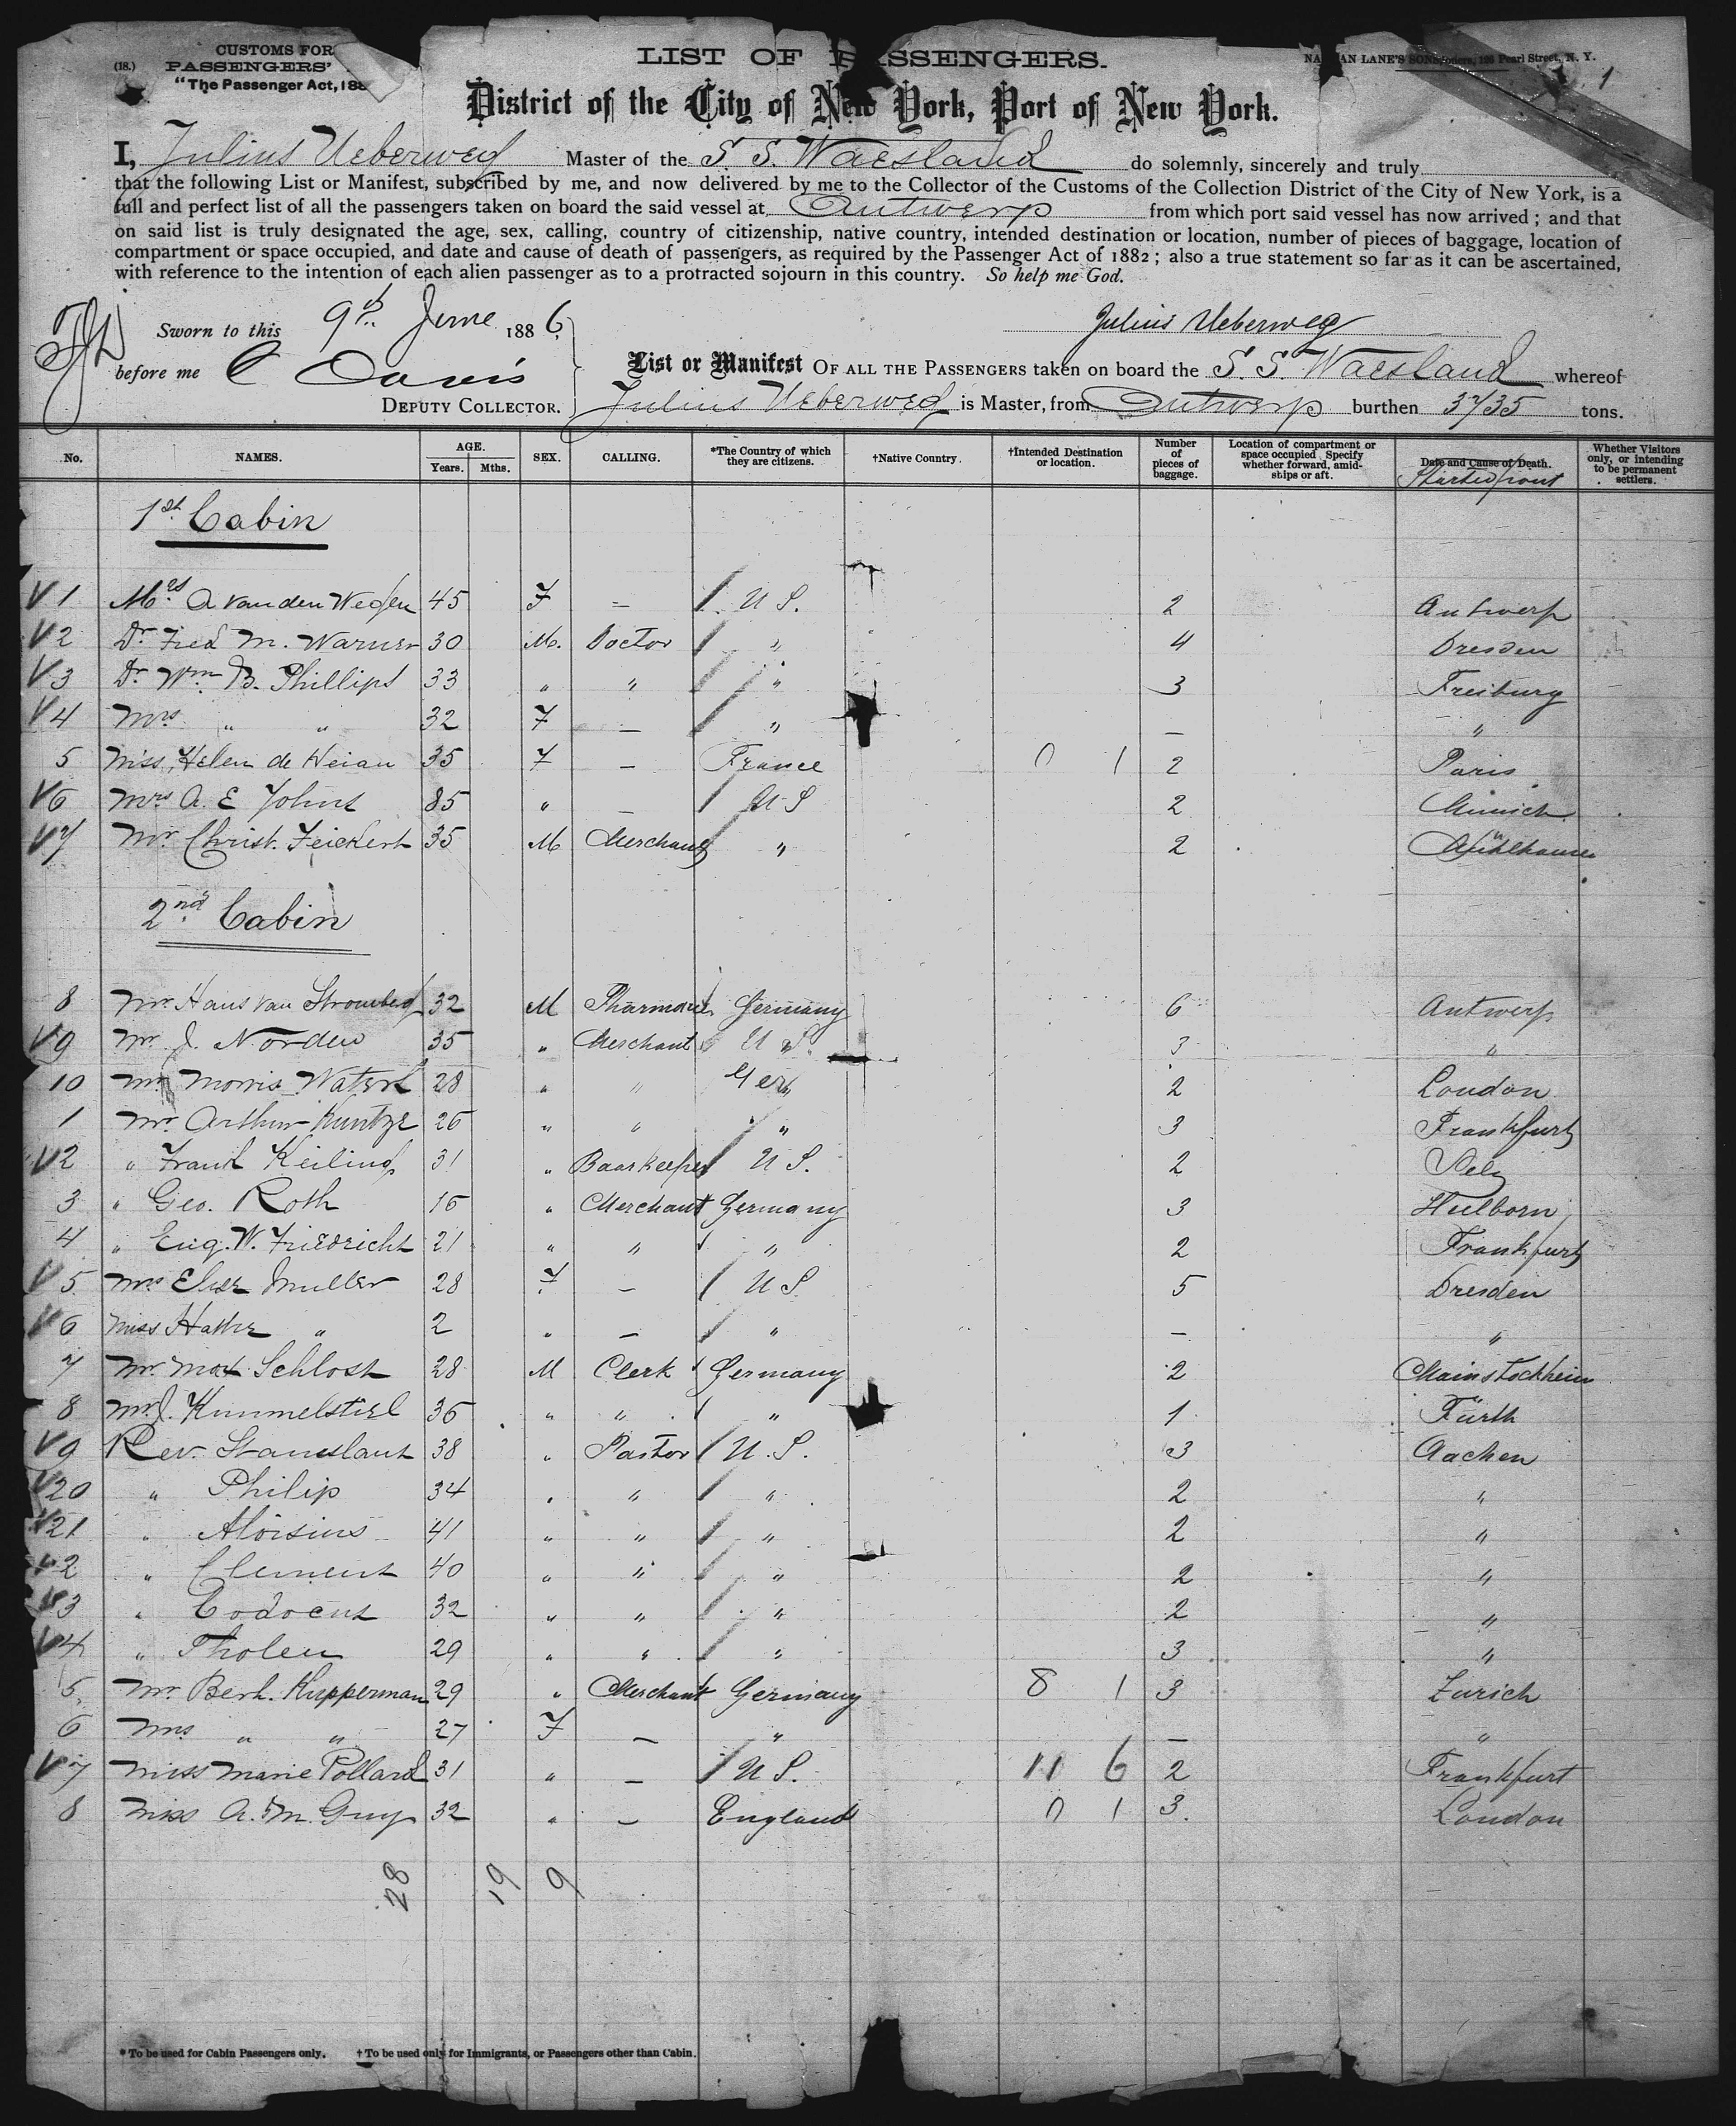 CUSTOMS FOR
(18.) PASSENGERS'
"The Passenger Act, 188
LIST OF PASSENGERS.
LANE'S SONS, 126 Pearl Street, N. Y.
1
District of the City of New York, Port of New York.
I, Julius Ueberweg Master of the S. S. Waesland do solemnly, sincerely and truly
that the following List or Manifest, subscribed by me, and now delivered by me to the Collector of the Customs of the Collection District of the City of New York, is a
full and perfect list of all the passengers taken on board the said vessel at Antwerp from which port said vessel has now arrived; and that
on said list is truly designated the age, sex, calling, country of citizenship, native country, intended destination or location, number of pieces of baggage, location of
compartment or space occupied, and date and cause of death of passengers, as required by the Passenger Act of 1882; also a true statement so far as it can be ascertained,
with reference to the intention of each alien passenger as to a protracted sojourn in this country. So help me God.
Sworn to this 9th June 1886 Julius Ueberweg
before me C Davis
DEPUTY COLLECTOR.
List or Manifest OF ALL THE PASSENGERS taken on board the S. S. Waesland whereof
Julius Ueberweg is Master, from Antwerp burthen 3735 tons.
No. NAMES. AGE. Years. Mths. SEX. CALLING. *The Country of which they are citizens. †Native Country. †Intended Destination or location. Number of pieces of baggage. Location of compartment or space occupied. Specify whether forward, amidships or aft. Date and Cause of Death. Started from Whether Visitors only, or intending to be permanent settlers.
1st Cabin
V 1 Mrs A van den 45 F – U S. 2 Antwerp
V 2 Dr Fred M. Warner 30 M. Doctor " 4 Dresden
V 3 Dr Wm B. Phillips 33 " " " 3 Freiburg
V 4 Mrs " " 32 F — " — "
5 Miss Helen de 35 F — France 0 1 2 Paris
V 6 Mrs A. E Johns 85 " — U S 2 Munich
V 7 Mr Christ. Feickert 35 M Merchant " 2 Mühlhausen
2nd Cabin
8 Mr Hans van Stromberg 32 M Germany 6 Antwerp
V 9 Mr J. Norden 35 " Merchant U S. 3 "
10 Mr Morris 28 " " Ger 2 London
1 Mr Arthur Kuntze 26 " " " 3 Frankfurt
V 2 " Frank Keiling 31 " Baarkeeper U S. 2
3 " Geo. Roth 16 " Merchant Germany 3 Heilborn
4 " Eug. W. Friedricht 21 " " " 2 Frankfurt
V 5 Mrs Elise Muller 28 F — U S 5 Dresden
V 6 Miss " 2 " — " — "
7 Mr Max Schloss 28 M Clerk Germany 2 Mainstockheim
8 Mr J. Kummelstiel 36 " " " 1 Fürth
V 9 Rev. Stanislaus 38 " Pastor U. S. 3 Aachen
V 20 " Philip 34 " " " 2 "
V 21 " Aloisius 41 " " " 2 "
V 2 " Clemens 40 " " " 2 "
V 3 " 32 " " " 2 "
V 4 " Tholen 29 " " " 3 "
5 Mr Berh. Kupperman 29 " Merchant Germany 8 1 3 Zurich
6 Mrs " " 27 F — " — "
V 7 Miss Marie Pollard 31 " — U S. 11 6 2 Frankfurt
8 Miss A. M. Guy 32 " — England 0 1 3. London
28 19 9
* To be used for Cabin Passengers only. † To be used only for Immigrants, or Passengers other than Cabin.